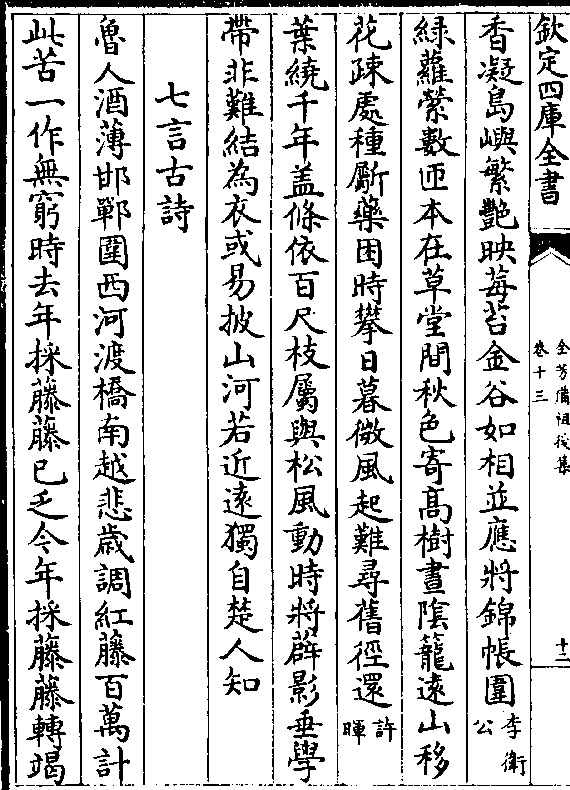 欽定四庫全書
全芳備祖後集
卷十三
十二
香凝島嶼繁艷映莓苔金谷如相並應將錦帳圍李衛公
綠蘿縈數匝本在草堂間秋色寄高樹晝陰籠遠山移
花疎處種斸藥困時攀日暮微風起難尋舊徑還許暉
葉繞千年盖條依百尺枝屬與松風動時將薜影垂學
帶非難結為衣或易披山河若近遠獨自楚人知
七言古詩
魯人酒薄邯鄲圍西河渡橋南越悲歲調紅藤百萬計
此苦一作無窮時去年採藤藤已乏今年採藤藤轉竭